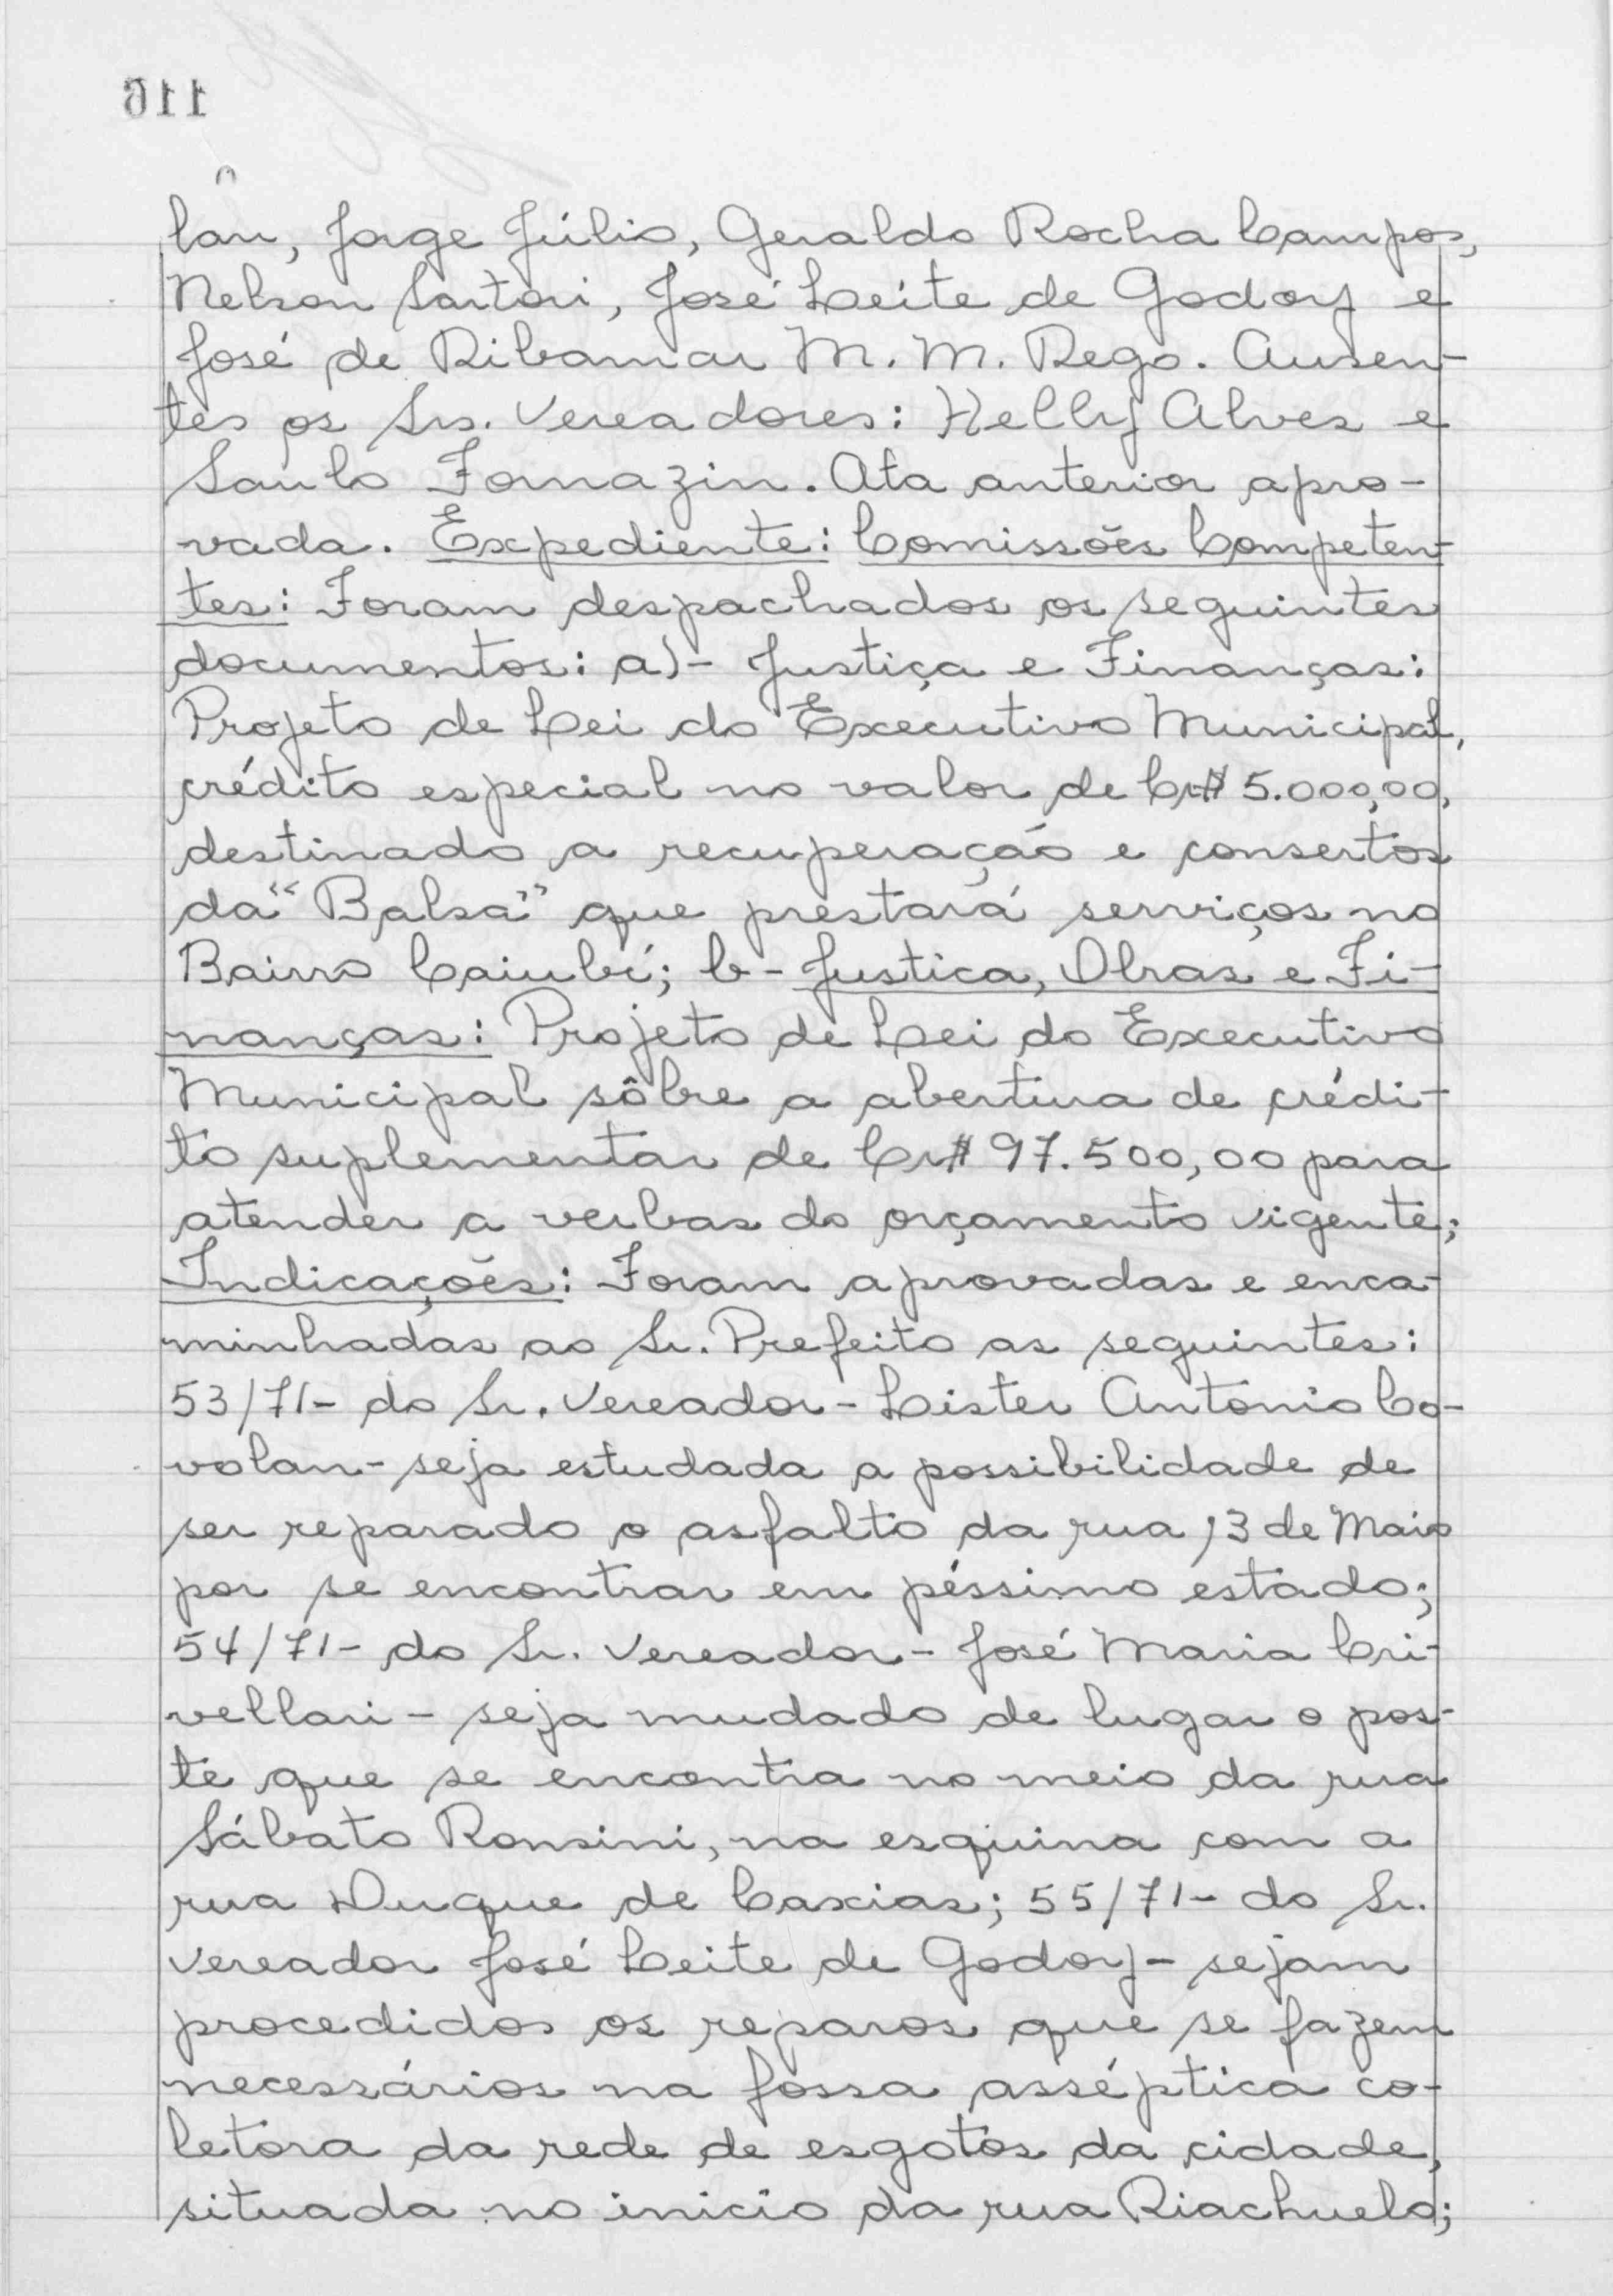 116
lan, Jorge Júlio, Geraldo Rocha Campos,
Nelson Sartori, José Leite de Godoy e
José de Ribamar M. M. Rego. Ausen-
tes os Srs. Vereadores: Helly Alves e
Saulo Fornazin. Ata anterior apro-
vada. Expediente: Comissões Competen-
tes: Foram despachados os seguintes
documentos: a)- Justiça e Finanças:
Projeto de Lei do Executivo Municipal,
crédito especial no valor de Cr$ 5.000,00,
destinado a recuperação e consertos
da "Balsa" que prestará serviços no
Bairro Caiubí; b- Justica, Obras e Fi-
nanças: Projeto de Lei do Executivo
Municipal sôbre a abertura de crédi-
to suplementar de Cr$ 97.500,00 para
atender a verbas do orçamento vigente;
Indicações: Foram aprovadas e enca-
minhadas ao Sr. Prefeito as seguintes:
53/71- do Sr. Vereador - Lister Antonio Co-
volan - seja estudada a possibilidade de
ser reparado o asfalto da rua 13 de Maio
por se encontrar em péssimo estado;
54/71- do Sr. Vereador - José Maria Cri-
vellari - seja mudado de lugar o pos-
te que se encontra no meio da rua
Sábato Ronsini, na esquina com a
rua Duque de Caxias; 55/71- do Sr.
Vereador José Leite de Godoy - sejam
procedidos os reparos que se fazem
necessários na fossa asséptica co-
letora da rede de esgotos da cidade,
situada no inicio da rua Riachuelo;